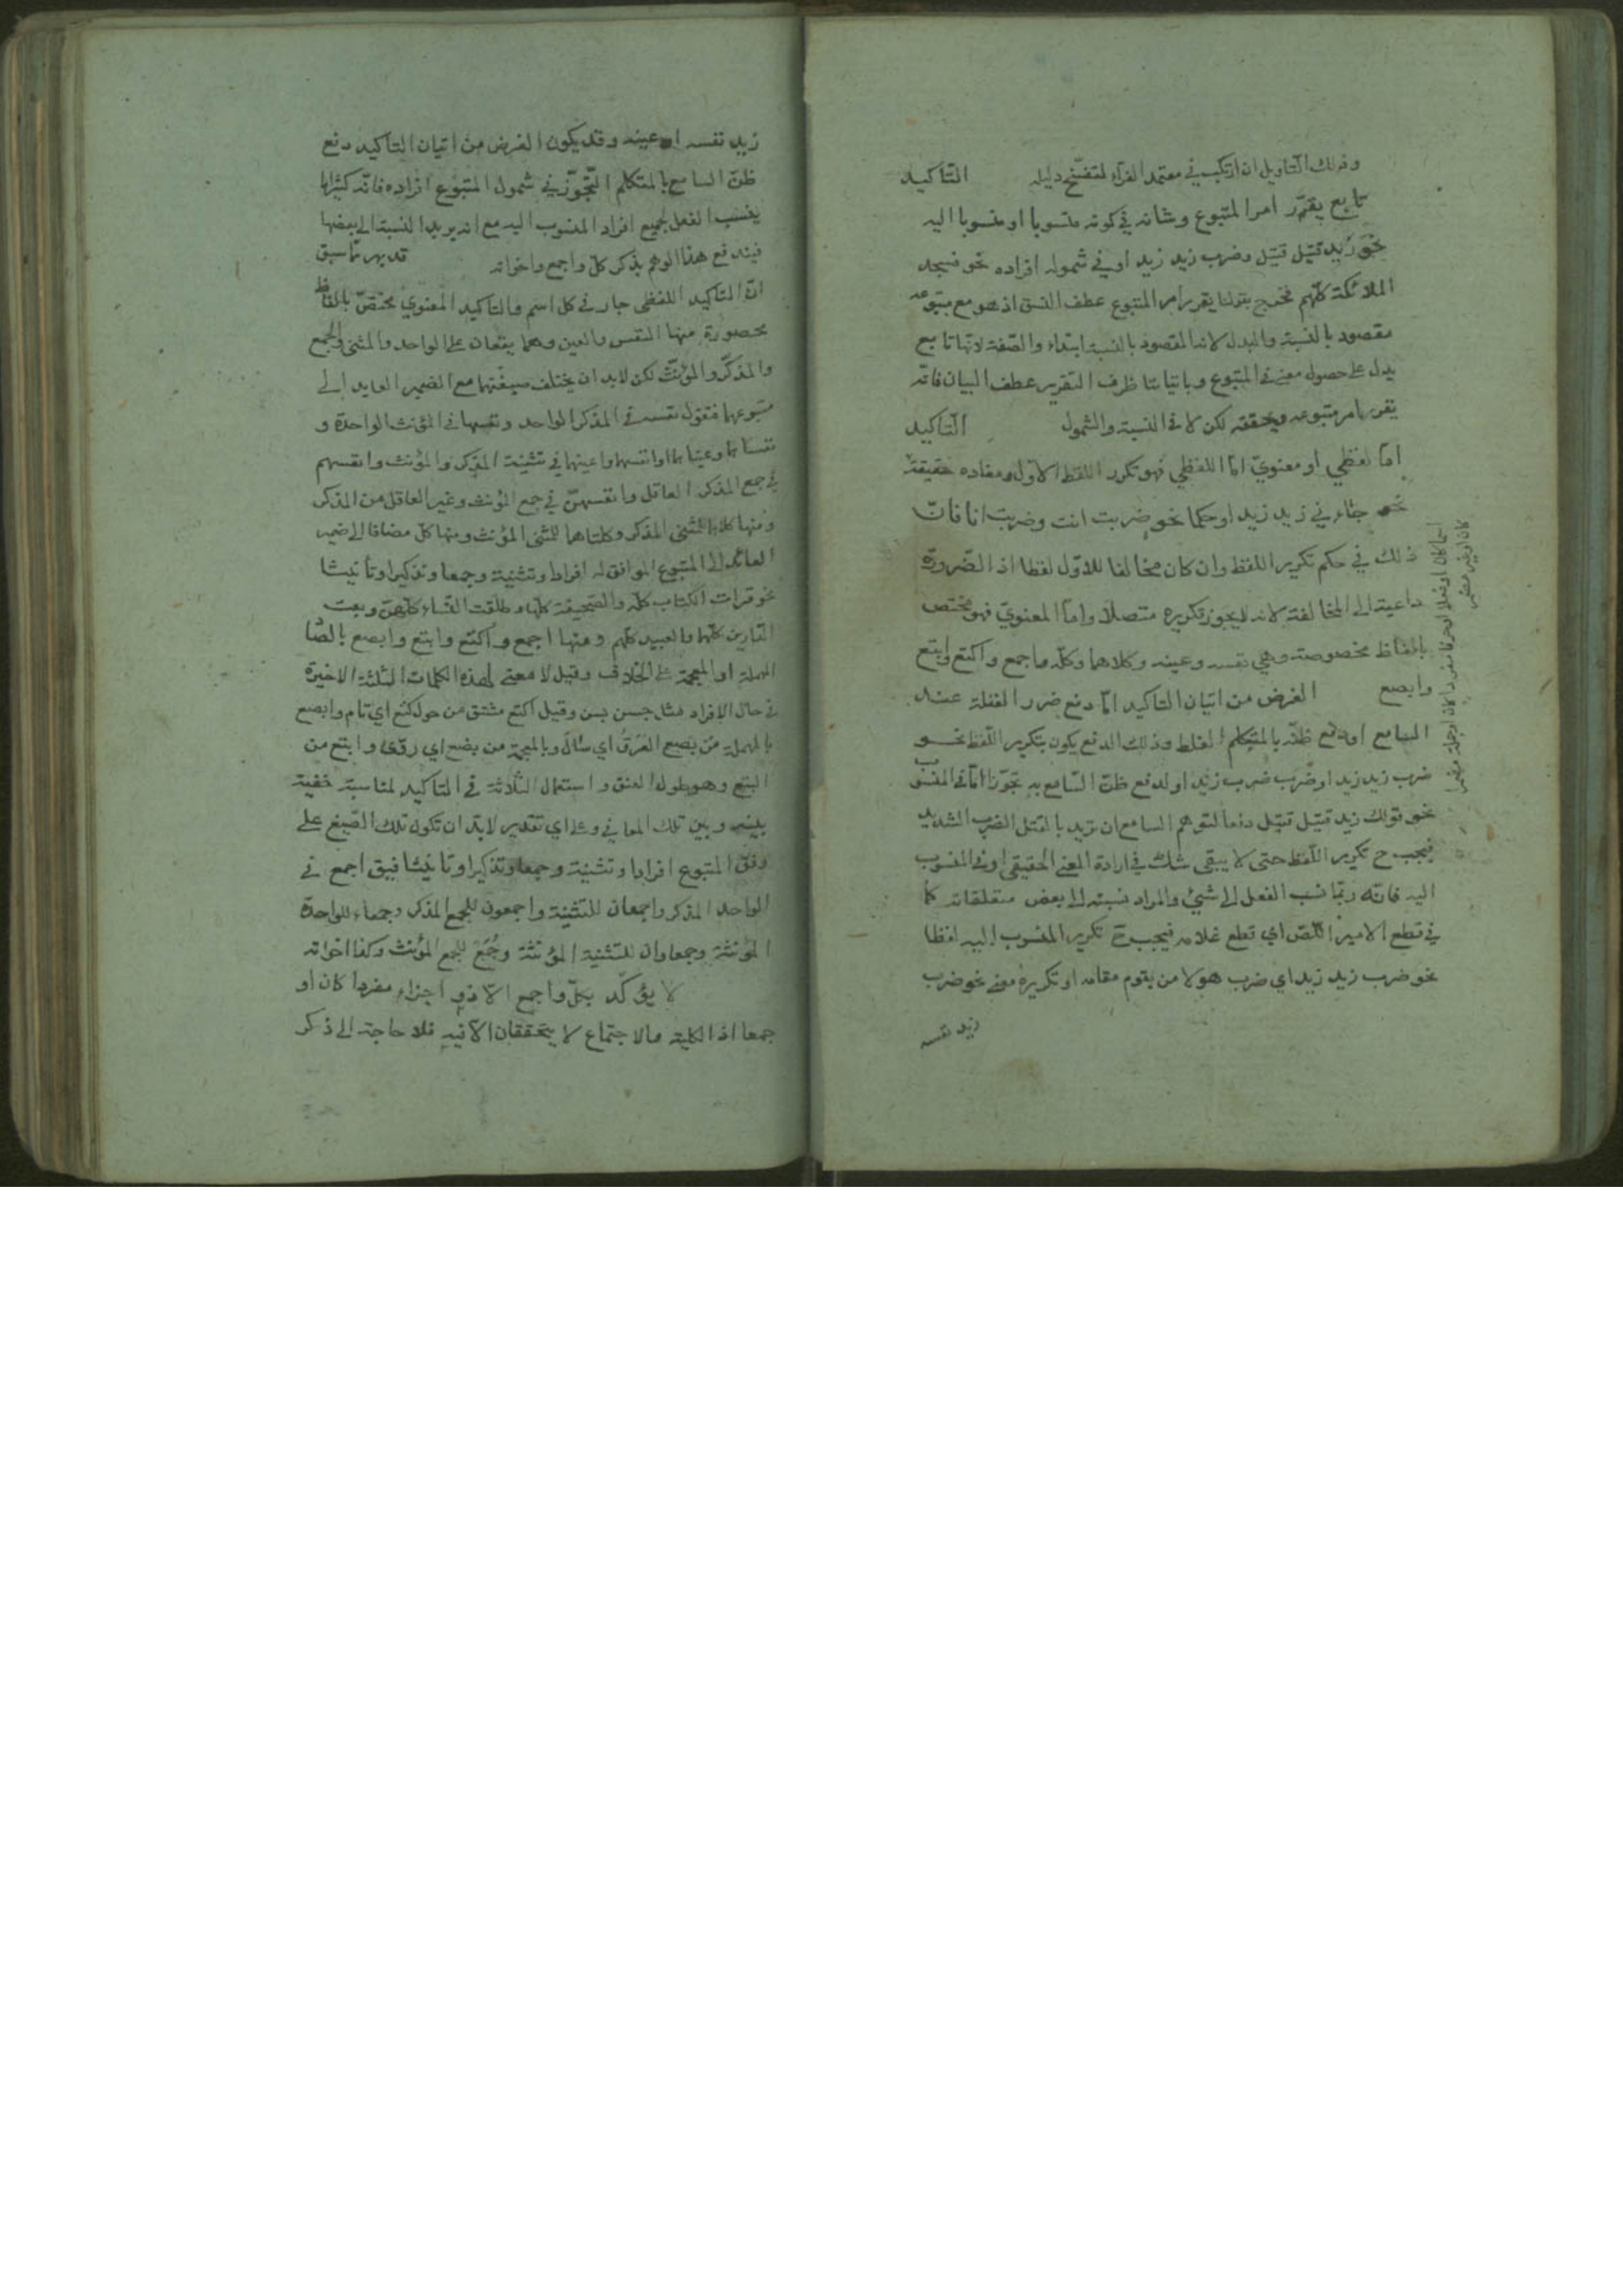 وذلك التاويل ان ارتكب في معتمد الفراء لتفسّخ دليله التّاكيد
تابع يقرّر امر المتبوع وشانه في كونه منسوبا او منسوبا اليه
نحو زيد قتيل قتيل وضرب زيد زيد او في شموله افراده نحو فسجد
الملائكة كلّهم فخرج بقولنا يقرر امر المتبوع عطف النسق اذ هو مع متبوعه
مقصود بالنسبة والبدل لانه المقصود بالنسبة ابتداء والصّفة لانّها تابع
يدل على حصول معنى في المتبوع وباتياننا ظرف التقرير عطف البيان فانّه
يقرر امر متبوعه ويحققه لكن لا في النسبة والشمول التّاكيد
امّا لفظي او معنويّ امّا اللفظي فهو تكرر اللفظ الاوّل ومفاده حقيقة
نحو جاءني زيد زيد او حكما نحو ضربت انت وضربت انا فانّ
ذلك في حكم تكرير اللفظ وان كان مخالفا للاوّل لفظا اذ الضّرورة
داعية الى المخالفة لانه لا يجوز تكريره متصلا وامّا المعنويّ فهو مختص
بالفاظ مخصوصة وهي نفسه وعينه وكلاهما وكلّه واجمع واكتع وابتع
وابصع الغرض من اتيان التاكيد امّا دفع ضرر الغفلة عند
السامع او دفع ظنّه بالمتكلم الغلط وذلك الدفع يكون بتكرير اللّفظ نحو
ضرب زيد زيد او ضرب ضرب زيد او لدفع ظنّ السّامع به تجوّزا امّا في المنسوب
نحو قولك زيد قتيل قتيل دفعا لتوهّم السامع ان تريد بالقتل الضرب الشديد
فيجب ح تكرير اللّفظ حتى لا يبقى شك في ارادة المعنى الحقيقي او في المنسوب
اليه فانّه ربّما نسب الفعل الى شيئ والمراد نسبته الى بعض متعلقاته كما
في قطع الامير اللّصّ اي قطع غلامه فيجب ح تكرير المنسوب اليه لفظا
نحو ضرب زيد زيد اي ضرب هو لا من يقوم مقامه او تكريره معنى نحو ضرب
زيد نفسه
اسما كان او فعلا او حرفا مفردا كان او جملة
كان او غير
زيد نفسه او عينه وقد يكون الغرض من اتيان التاكيد دفع
ظنّ السامع بالمتكلم التّجوّز في شمول المتبوع افراده فانّه كثيرا ما
ينسب الفعل لجميع افراد المنسوب اليه مع انه يريد النسبة الى بعضها
فيندفع هذا الوهم بذكر كلّ واجمع واخواته قد بهر ممّا سبق
انّ التاكيد اللفظي جار في كل اسم والتاكيد المعنوي مختصّ بالفاظ
محصورة منها النفس والعين وهما يقعان على الواحد والمثنى والجمع
والمذكّر والمؤنّث لكن لابد ان يختلف صيغتهما مع الضمير العايد الى
متبوعهما فتقول نفسه في المذكر الواحد ونفسها في المؤنث الواحدة و
نفساهما وعيناهما او انفسهما واعينهما في تثنية المذكر والمؤنث وانفسهم
في جمع المذكر العاقل وانفسهنّ في جمع المؤنث وغير العاقل من المذكر
ومنها كلاهما للمثنى المذكر وكلتاهما للمثنى المؤنث ومنها كلّ مضافا الى ضميره
العائد الى المتبوع الموافق له افرادا وتثنية وجمعا وتذكيرا وتأنيثا
نحو قرات الكتاب كلّه والصّحيفة كلّها وطلّقت النّساء كلّهنّ وبعت
كلّها والعبيد كلّهم ومنها اجمع واكتع وابتع وابصع بالصّاد
المهملة او المعجمة على الخلاف وقيل لا معنى لهذه الكلمات الثلثة الاخيرة
في حال الافراد مثل حسن بسن وقيل اكتع مشتق من حول كتع اي تام وابصع
بالمهملة من بصع العَرَقُ اي سال وبالمعجمة من بضع اي روّى وابتع من
البتع وهو طول العنق واستعمال الثلاثة في التاكيد لمناسبة خفيّة
بينه وبين تلك المعاني وعلى اي تقدير لابدّ ان تكون تلك الصّيغ على
وفق المتبوع افرادا وتثنية وجمعا وتذكيرا وتانيثا فيق اجمع في
الواحد المذكر واجمعان للتثنية واجمعون للجمع المذكر وجمعاء للواحدة
المؤنثة وجمعاوان للتثنية المؤنثة وجُمَع للجمع المؤنث وكذا اخواته
لا يؤكّد بكلّ واجمع الّا ذو اجزاء مفردا كان او
جمعا اذ الكلية والاجتماع لا يتحققان الّا فيه فلا حاجة الى ذكر